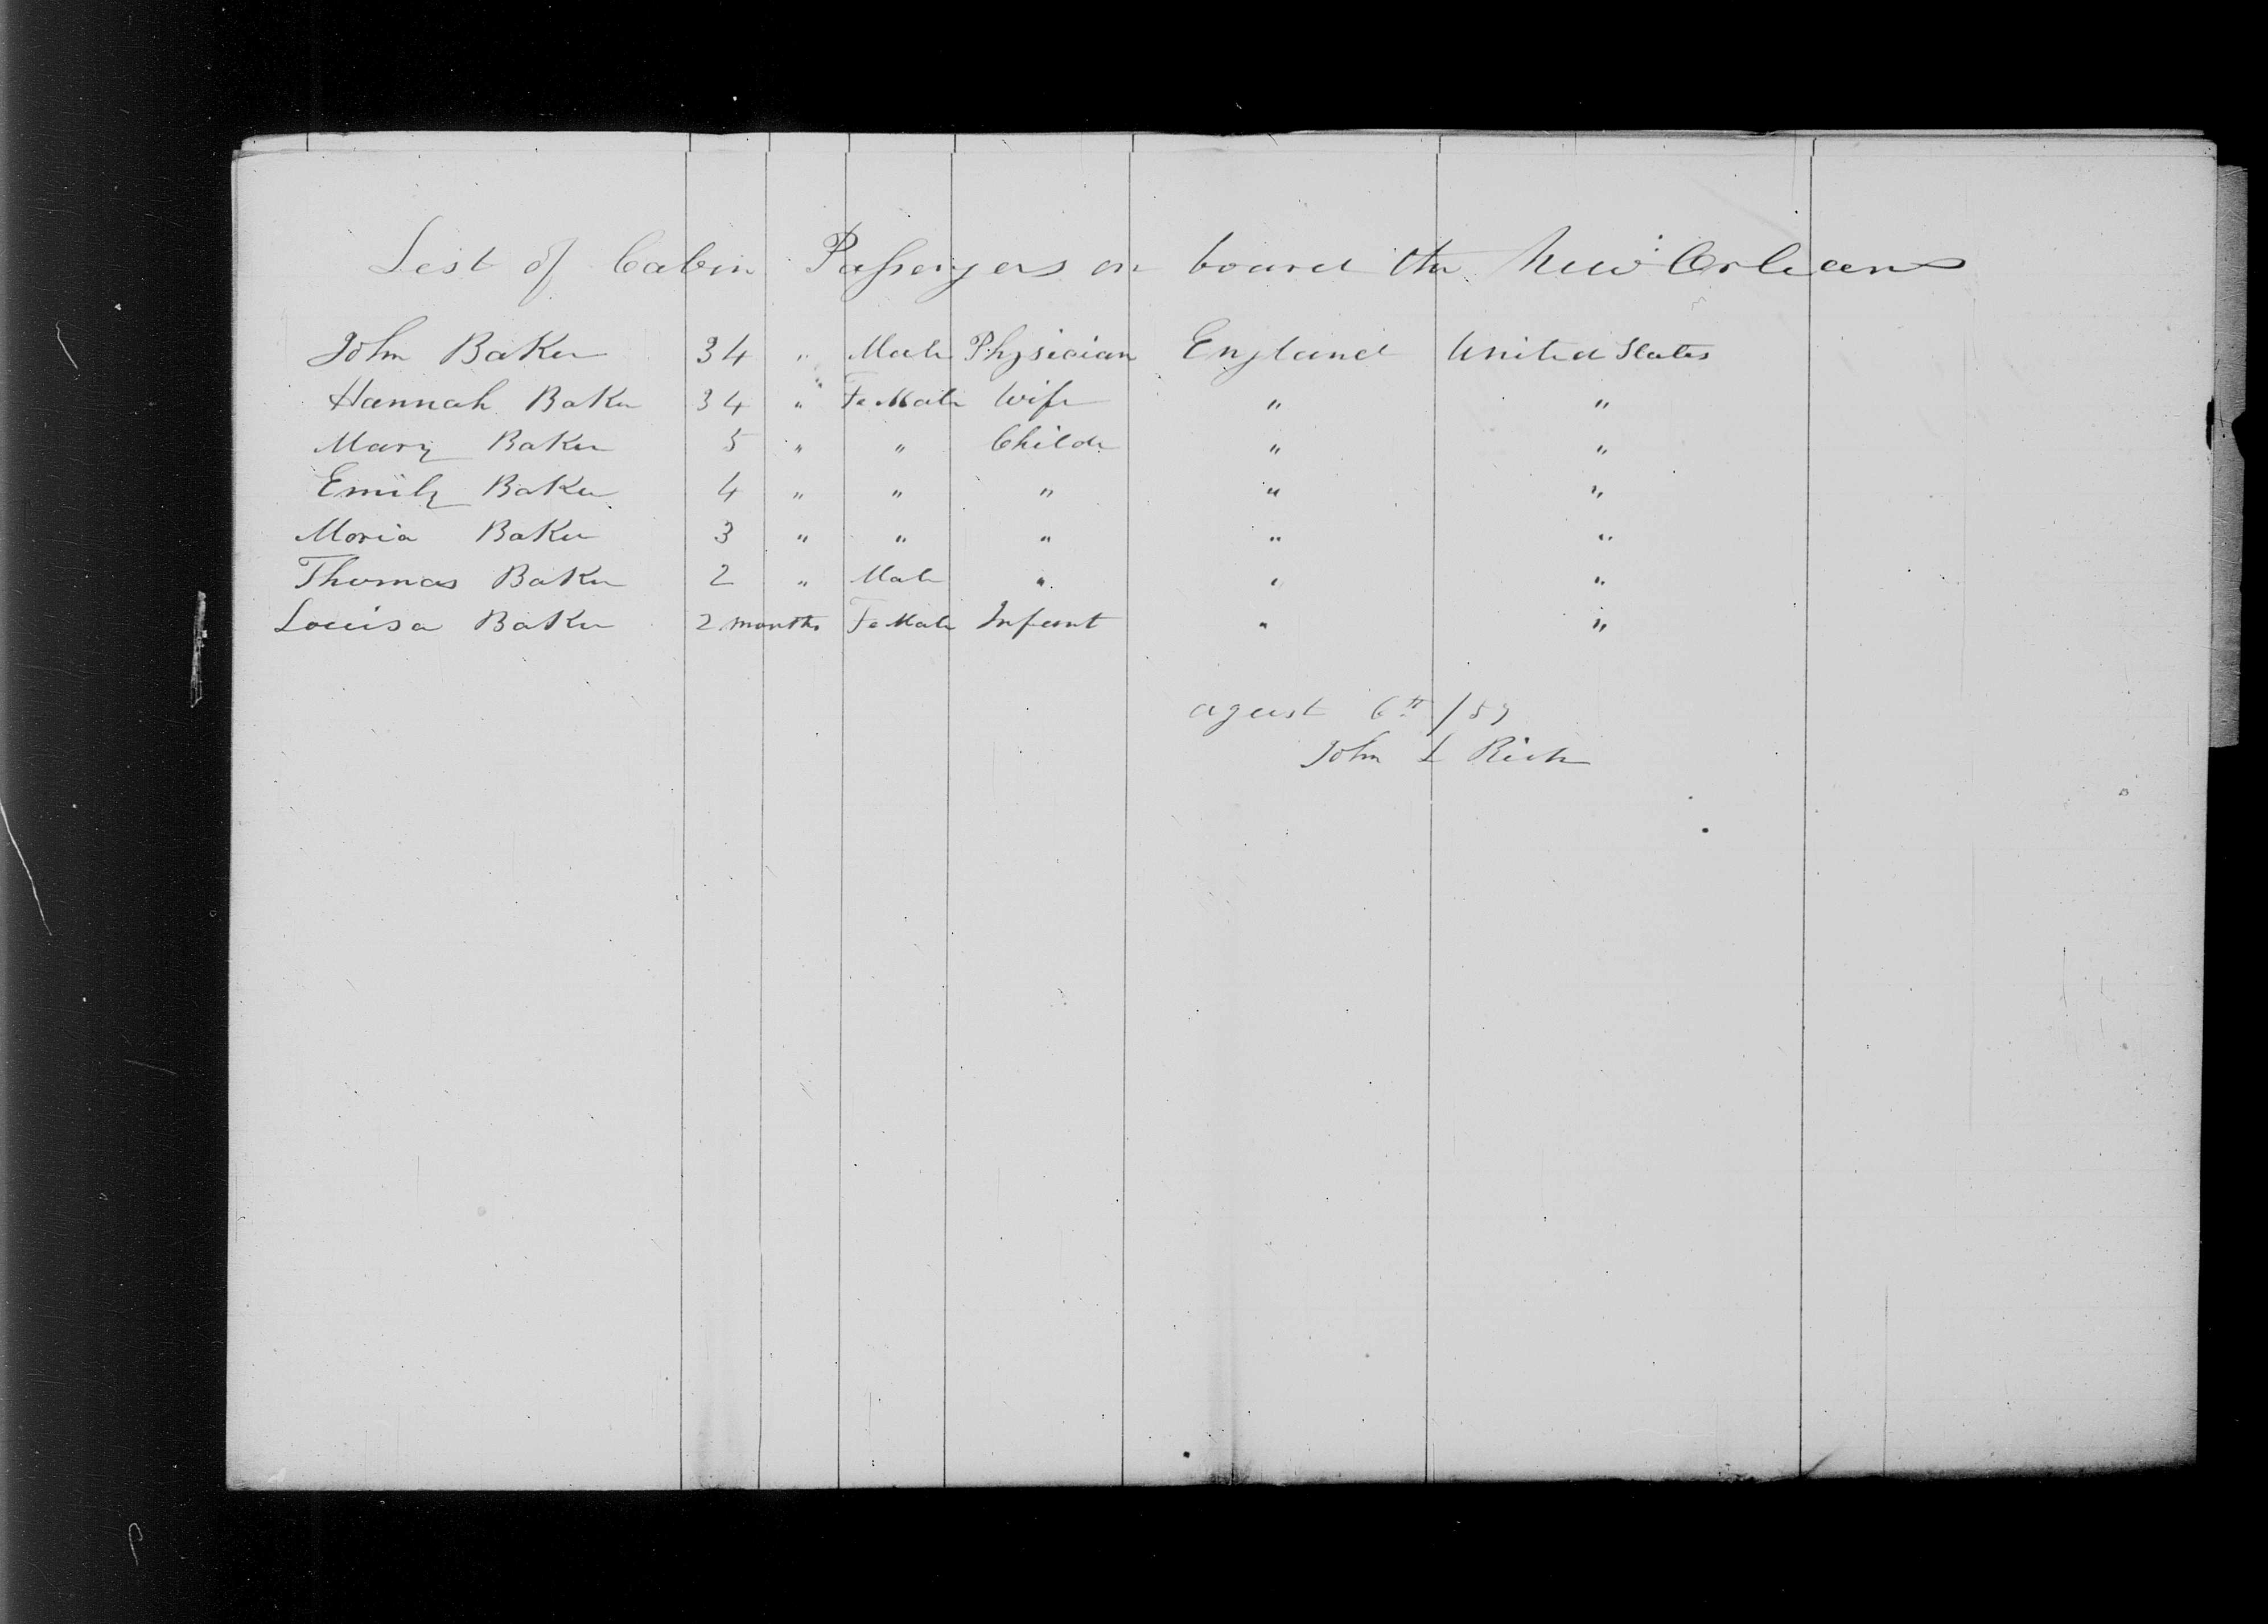 List of Cabin Passengers on board the New Orleans
John Baker 34 " Male Physician England United States
Hannah Baker 34 " FeMale Wife " "
Mary Baker 5 " " Childe " "
Emily Baker 4 " " " " "
Moria Baker 3 " " " " "
Thomas Baker 2 " Male " " "
Louisa Baker 2 months FeMale Infant " "
agust 6th /59
John L Rich